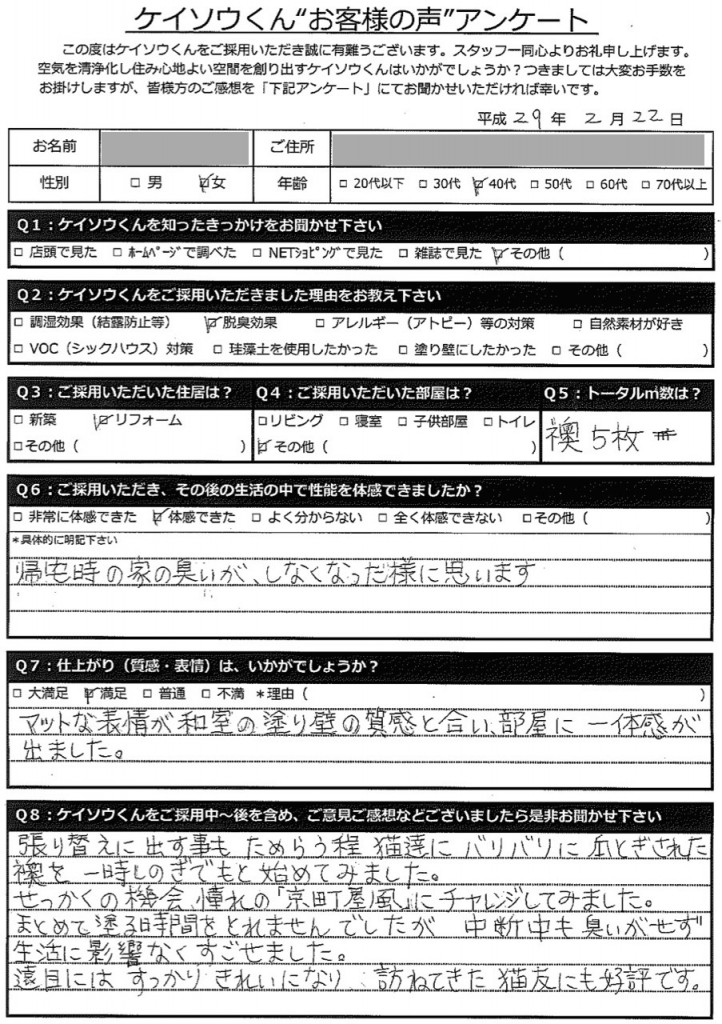 ケイソウくん“お客様の声”アンケート
この度はケイソウくんをご採用いただき誠に有難うございます。スタッフ一同心よりお礼申し上げます。
空気を清浄化し住み心地よい空間を創り出すケイソウくんはいかがでしょうか？つきましては大変お手数を
お掛けしますが、皆様方のご感想を「下記アンケート」にてお聞かせいただければ幸いです。
平成 29 年 2 月 22 日
お名前 ご住所
性別 □ 男 ☑ 女 年齢 □ 20代以下 □ 30代 ☑ 40代 □ 50代 □ 60代 □ 70代以上
Q1：ケイソウくんを知ったきっかけをお聞かせ下さい
□ 店頭で見た □ ﾎｰﾑﾍﾟｰｼﾞで調べた □ NETｼｮﾋﾟﾝｸﾞで見た □ 雑誌で見た ☑ その他（ ）
Q2：ケイソウくんをご採用いただきました理由をお教え下さい
□ 調湿効果（結露防止等） ☑ 脱臭効果 □ アレルギー（アトピー）等の対策 □ 自然素材が好き
□ VOC（シックハウス）対策 □ 珪藻土を使用したかった □ 塗り壁にしたかった □ その他（ ）
Q3：ご採用いただいた住居は？ Q4：ご採用いただいた部屋は？ Q5：トータル㎡数は？
□ 新築 ☑ リフォーム □リビング □ 寝室 □ 子供部屋 □ トイレ
□ その他（ ） ☑ その他（ ） 襖 5枚
Q6：ご採用いただき、その後の生活の中で性能を体感できましたか？
□ 非常に体感できた ☑ 体感できた □ よく分からない □ 全く体感できない □その他（ ）
＊具体的に明記下さい
帰宅時の家の臭いが、しなくなった様に思います
Q7：仕上がり（質感・表情）は、いかがでしょうか？
□ 大満足 ☑ 満足 □ 普通 □ 不満 ＊理由（ ）
マットな表情が和室の塗り壁の質感と合い、部屋に一体感が
出ました。
Q8：ケイソウくんをご採用中～後を含め、ご意見ご感想などございましたら是非お聞かせ下さい
張り替えに出す事もためらう程 猫達にバリバリに爪とぎされた
襖を一時しのぎでもと始めてみました。
せっかくの機会、憧れの「京町屋風」にチャレンジしてみました。
まとめて塗る時間をとれませんでしたが 中断中も臭いがせず
生活に影響なくすごせました。
遠目にはすっかりきれいになり、訪ねてきた猫友にも好評です。